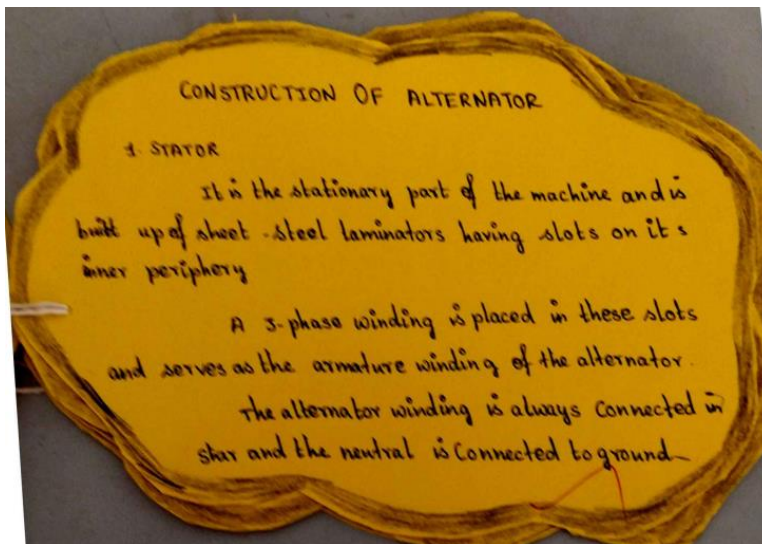 CONSTRUCTION OF ALTERNATOR
1. STATOR
It is the stationary part of the machine and is
built up of sheet-steel laminators having slots on it's
inner periphery
A 3-phase winding is placed in these slots
and serves as the armature winding of the alternator.
The alternator winding is always connected in
star and the neutral is connected to ground